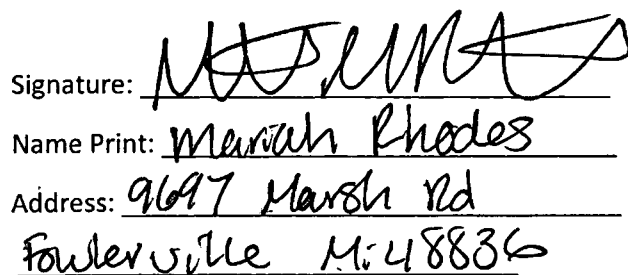 Signature:
Name Print: Mariah Rhodes
Address: 9697 Marsh Rd
Fowlerville Mi 48836